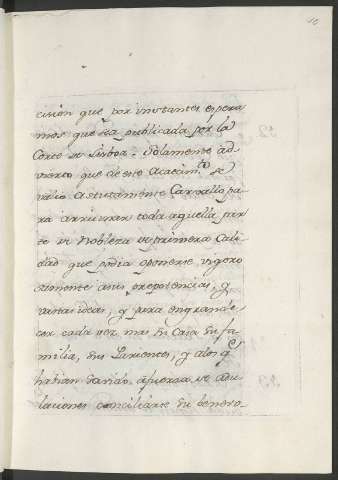 cision que por instantes espera
mos que sea publicada por la
Corte de Lisboa. Solamente ad
vierto que de este Acaecim.to se
valio astutamente Carvallo pa
ra arruinar toda aquella par
te de Nobleza de primera Cali
dad que podia oponerse vigoro
samente a sus prepotencias, y
vastas ideas, y para engrande
cer cada vez mas su Casa su fa
milia, sus Parientes, y a los q.e
habian savido a fuerza de adu
laciones conciliarse su benevo-